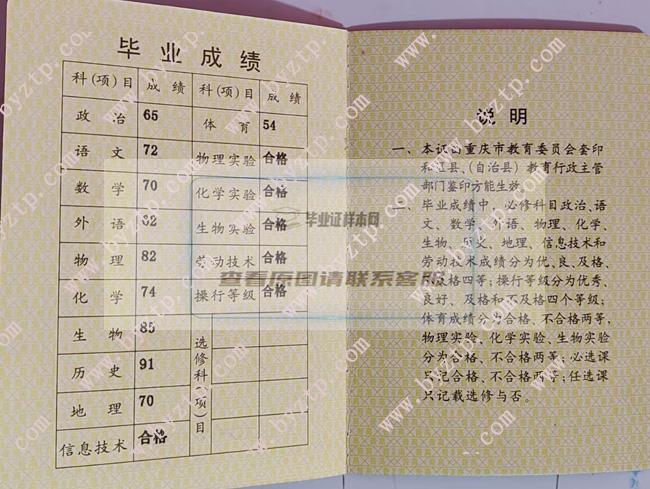 毕业成绩
科(项)目 成绩 科(项)目 成绩
政治 65 体育 54
语文 72 物理实验 合格
数学 70 化学实验 合格
外语 62 生物实验 合格
物理 82 劳动技术 合格
化学 74 操行等级 合格
生物 85
历史 91
地理 70
信息技术 合格
选修科(项)目
说明
一、本证由重庆市教育委员会套印
和区县、(自治县)教育行政主管
部门鉴印方能生效。
二、毕业成绩中,必修科目政治、语
文、数学、外语、物理、化学、
生物、历史、地理、信息技术和
劳动技术成绩分为优、良、及格、
不及格四等;操行等级分为优秀、
良好、及格和不及格四个等级;
体育成绩分为合格、不合格两等,
物理实验、化学实验、生物实验
分为合格、不合格两等;必选课
只记合格、不合格两等;任选课
只记载选修与否。
毕业证样本网
查看原图请联系客服
www.byztp.com